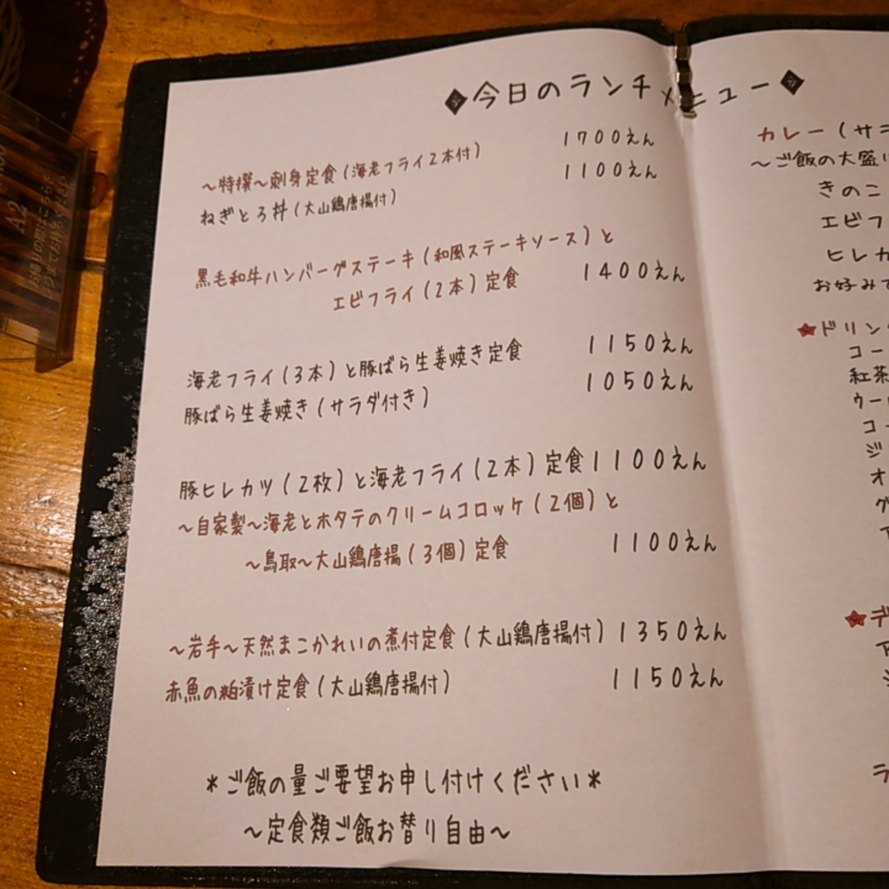 ◆今日のランチメニュー◆
～特撰～刺身定食(海老フライ2本付) 1700えん
ねぎとろ丼(大山鶏唐揚付) 1100えん
黒毛和牛ハンバーグステーキ(和風ステーキソース)と
エビフライ(2本)定食 1400えん
海老フライ(3本)と豚ばら生姜焼き定食 1150えん
豚ばら生姜焼き(サラダ付き) 1050えん
豚ヒレカツ(2枚)と海老フライ(2本)定食 1100えん
～自家製～海老とホタテのクリームコロッケ(2個)と
～鳥取～大山鶏唐揚(3個)定食 1100えん
～岩手～天然まこかれいの煮付定食(大山鶏唐揚付) 1350えん
赤魚の粕漬け定食(大山鶏唐揚付) 1150えん
*ご飯の量ご要望お申し付けください*
～定食類ご飯お替り自由～
カレー(サ
～ご飯の大盛
きのこ
エビフ
ヒレカ
お好みで
★ドリン
コー
紅茶
ウー
コー
ジ
オ
グ
★デ
ラ
A2